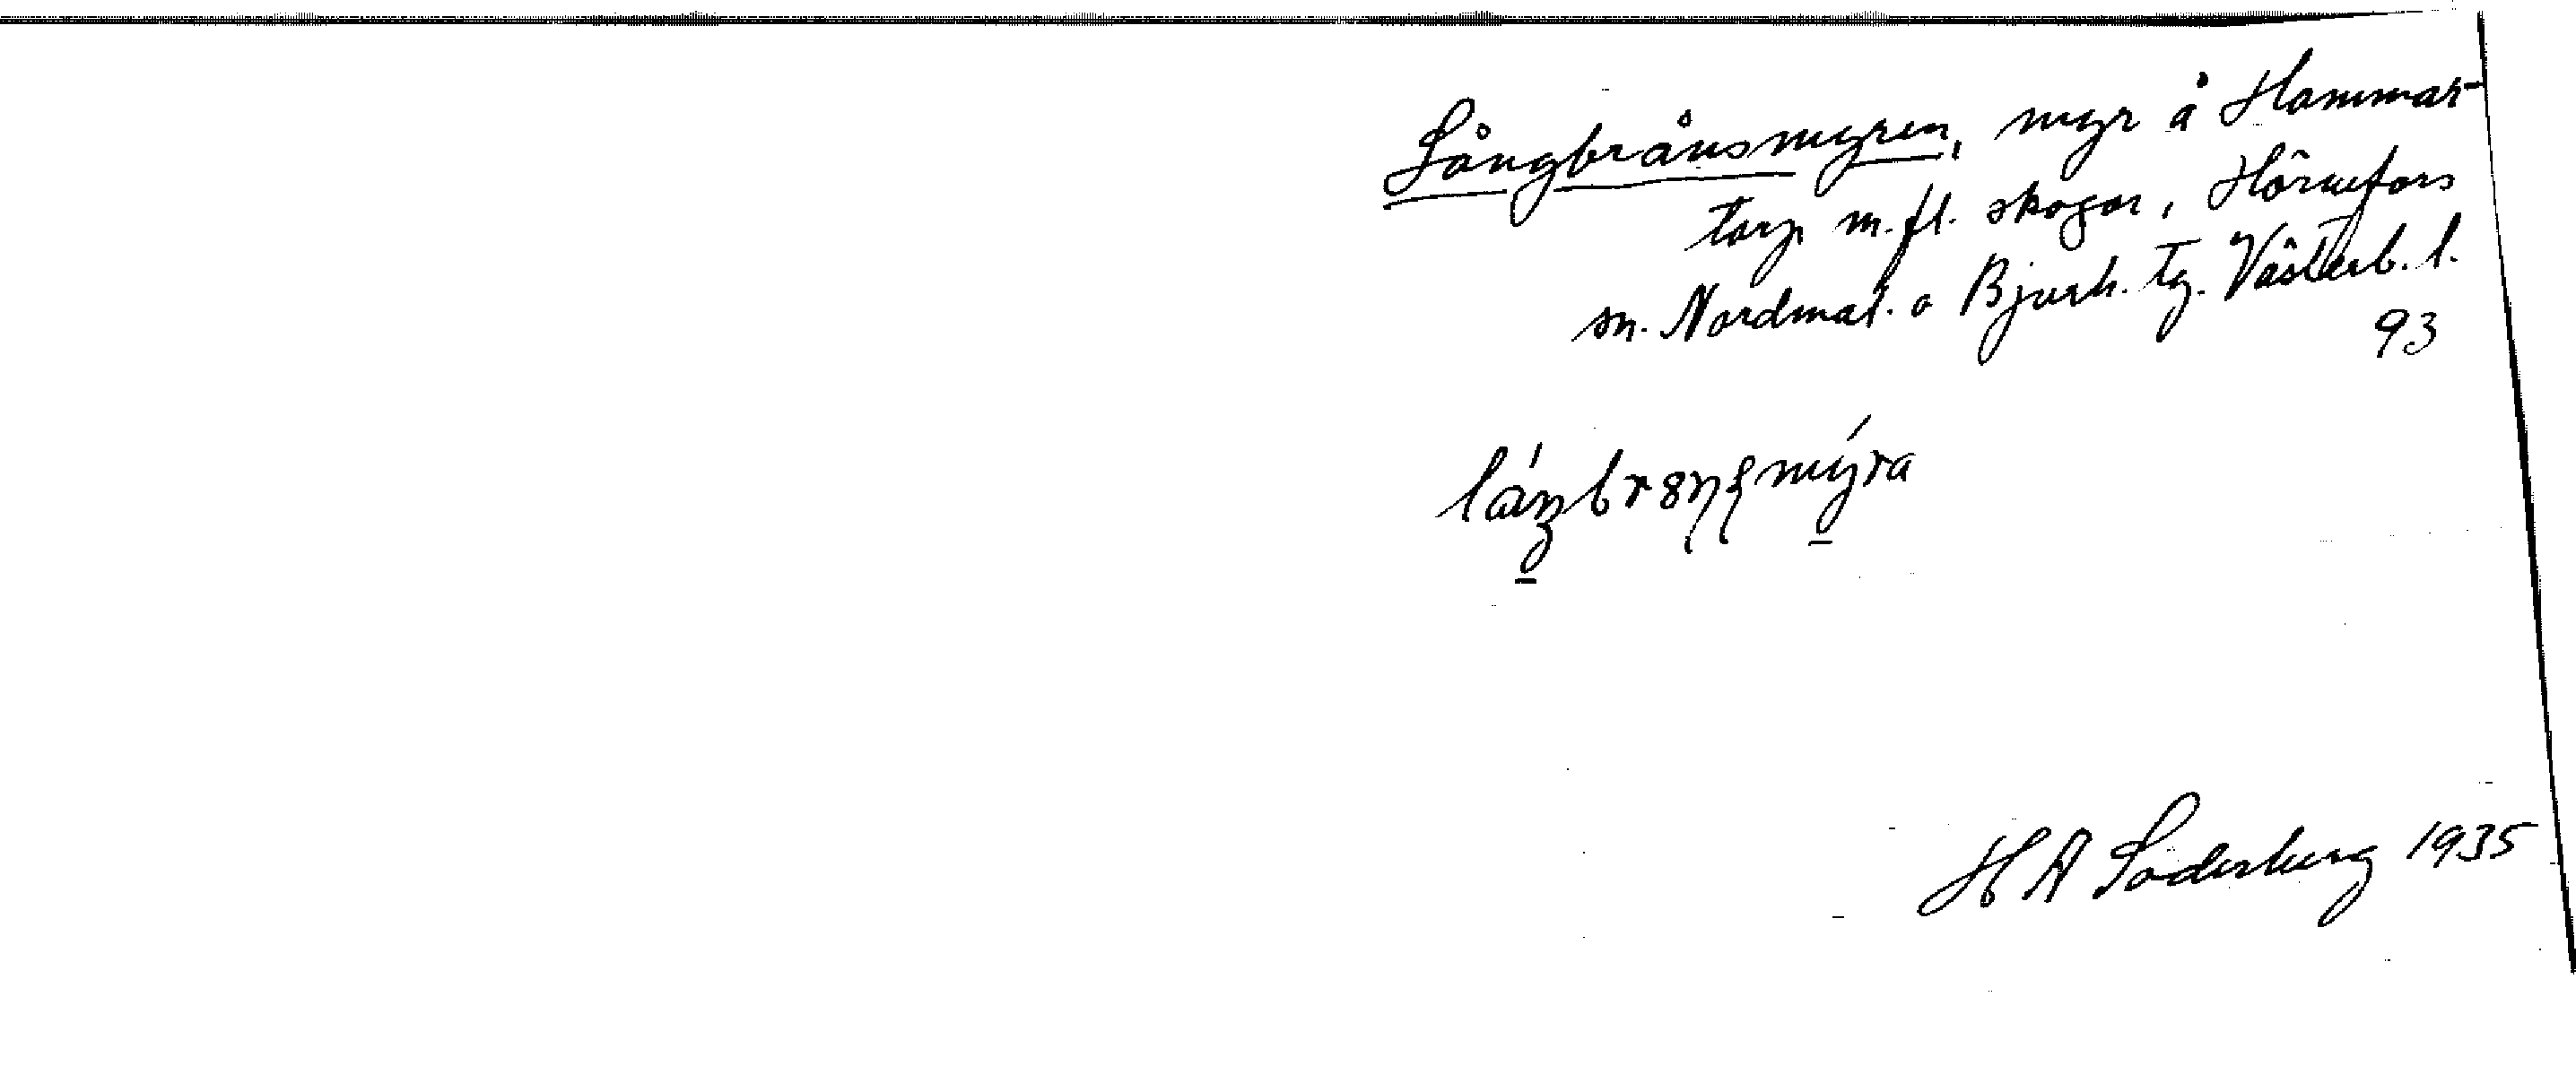 Långbrånsmyren, myr å Hammar-
torp m.fl. skogar, Hörnefors
sn. Nordmal. o Bjurh. tg. Västerb. l.
93
H A Söderberg 1935